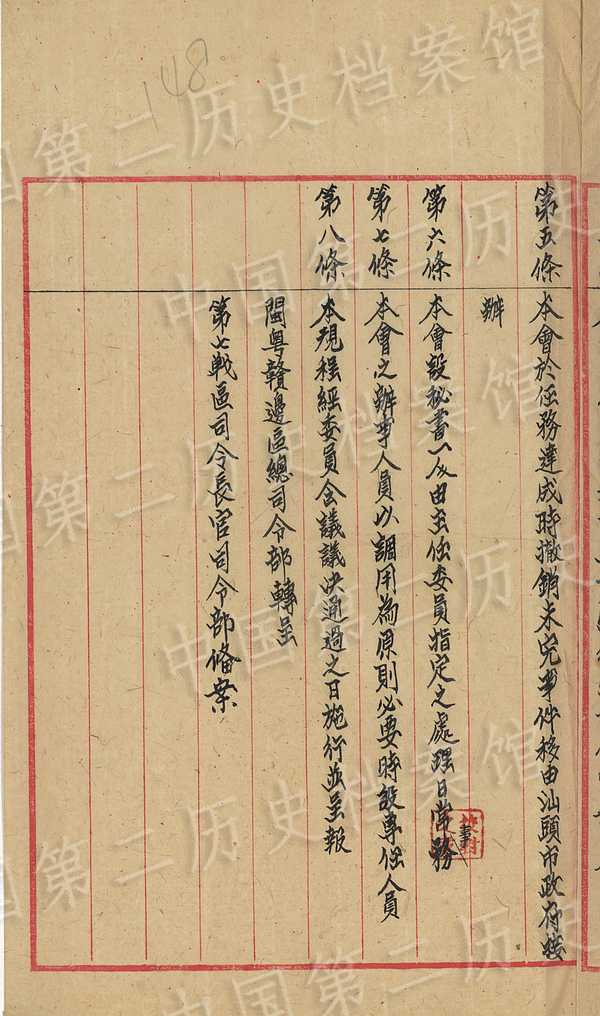 148
第五條 本會於任務達成時撤銷未完事件移由汕頭市政府接
辦
第六條 本會設秘書一人由主任委員指定之處理日常事務
第七條 本會之辦事人員以調用為原則必要時設專任人員
第八條 本規程經委員會議議決通過之日施行並呈報
閩粵贛邊區總司令部轉呈
第七戰區司令長官司令部備案
中国第二历史档案馆